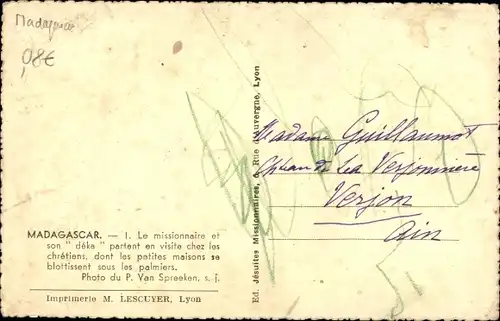 Madagascar
08€
MADAGASCAR. — 1. Le missionnaire et
son " déka " partent en visite chez les
chrétiens, dont les petites maisons se
blottissent sous les palmiers.
Photo du P. Van Spreeken, s. j.
Imprimerie M. LESCUYER, Lyon
Ed. Jésuites Missionnaires, 6, Rue d'Auvergne, Lyon
Madame Guillaumot
Château de La Verjonnière
Verjon
Ain